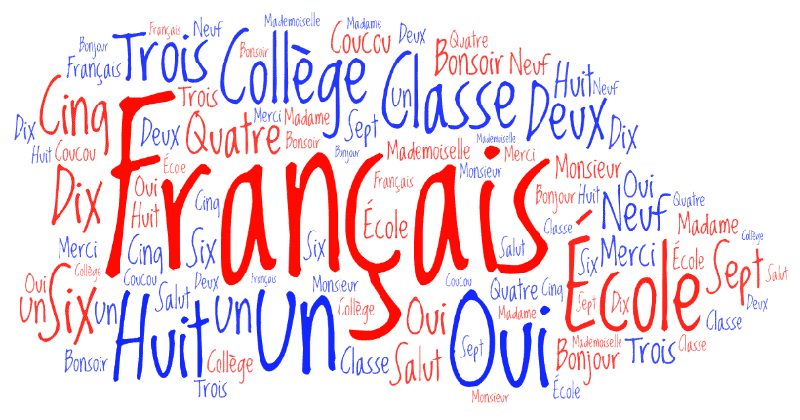 Français Neuf Mademoiselle Madame
Bonjour Trois Bonsoir Coucou Deux Quatre
Français Collège Bonsoir Neuf
Cinq Trois Un Classe Huit Neuf
Dix Deux Quatre Merci Madame Sept Deux Dix
Huit Coucou Bonsoir Bonjour Mademoiselle Mademoiselle Merci
Écoe Français Français Monsieur Monsieur
Dix Oui Huit Cinq École Bonjour Huit Oui Quatre
Neuf Classe Madame Collège
Merci Cinq Six Six Salut École Six Merci École Sept Salut
Oui Collège Coucou Deux Français Monsieur Coucou Quatre Cinq
Un Six Un Salut Un Un Collège Oui Oui Madame Sept Dix Deux
Huit Classe
Bonsoir Collège Classe Salut Sept Mademoiselle Bonjour Trois Classe
Trois Monsieur École